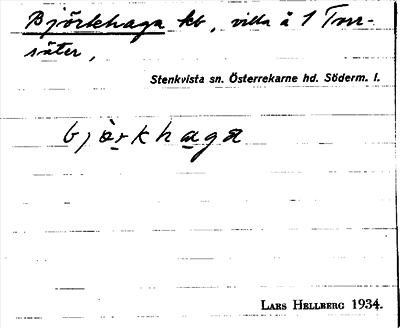 Björkhaga kb, villa å 1 Torr-
säter,
Stenkvista sn. Österrekarne hd. Söderm. l.
bjòrkhaga
LARS HELLBERG 1934.